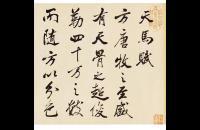 天馬賦
方唐牧之至盛
有天骨之超俊
勒四十萬之數
而隨方以分色